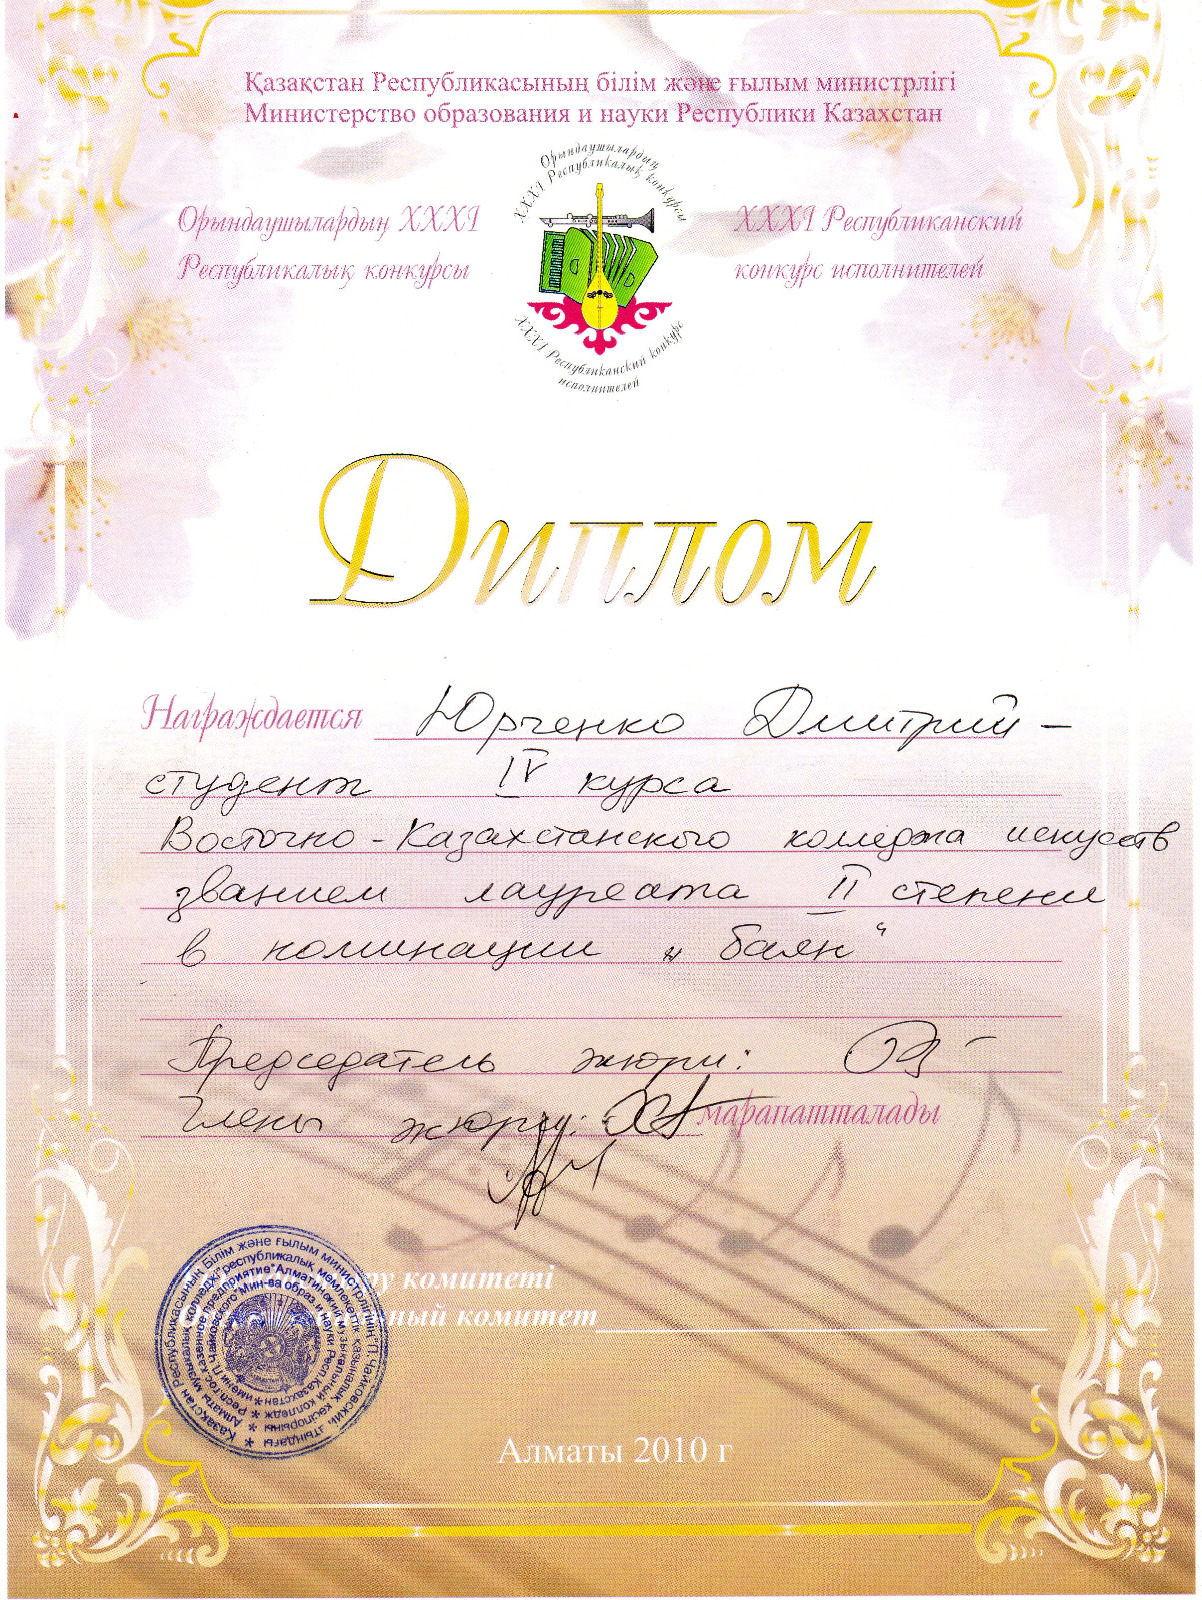 Қазақстан Республикасының білім және ғылым министрлігі
Министерство образования и науки Республики Казахстан
Орындаушылардың XXXI
Республикалық конкурсы
Орындаушылардың
XXXI Республикалық конкурсы
XXXI Республиканский конкурс
исполнителей
XXXI Республиканский
конкурс исполнителей
Диплом
Награждается Юрченко Дмитрий –
студент IV курса
Восточно-Казахстанского колледжа искусств
званием лауреата II степени
в номинации „баян“
Председатель жюри:
Члены жюри:
марапатталады
комитеті
комитет
Қазақстан Республикасының Білім және ғылым министрлігінің "П.Чайковский атындағы
Алматы музыкалық колледжі" республикалық мемлекеттік қазыналық кәсіпорыны
Респ.гос.казенное предприятие "Алматинский музыкальный колледж
имени П.Чайковского" Мин-ва образ.и науки Респ.Казахстан
Алматы 2010 г